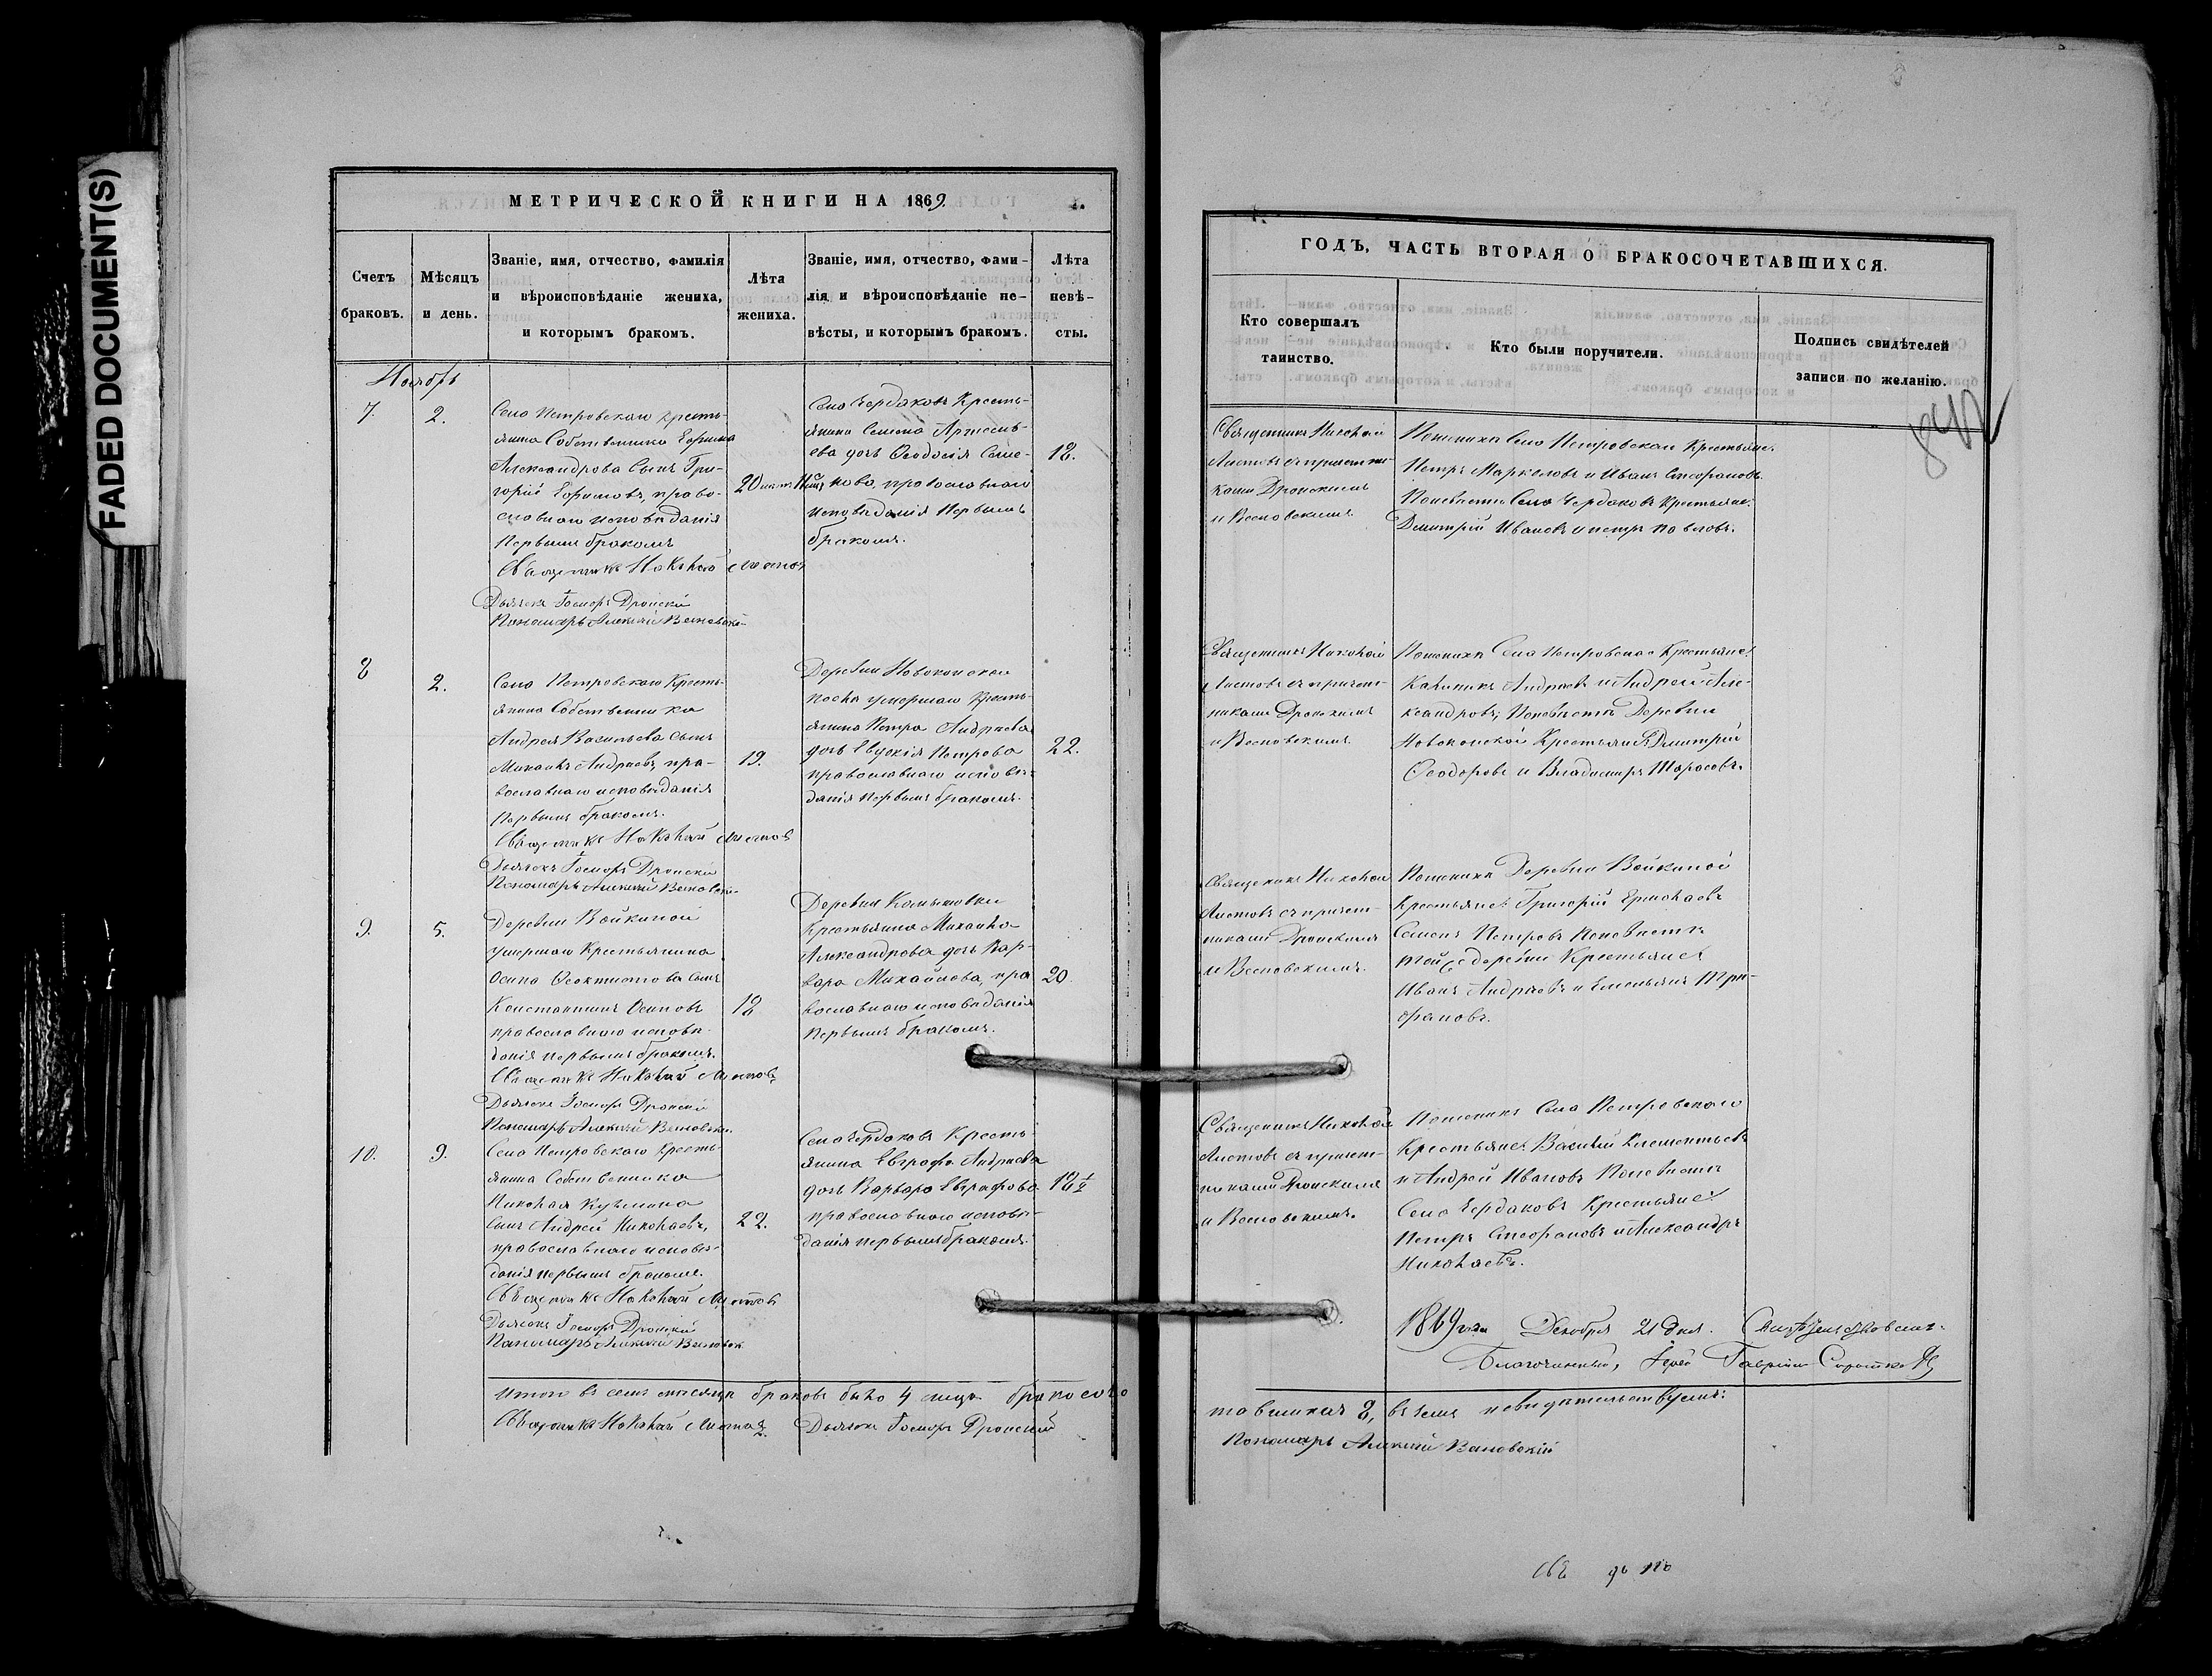 FADED DOCUMENT(S)
МЕТРИЧЕСКОЙ КНИГИ НА 1869.
Счетъ
браковъ.
Мѣсяцъ
и день.
Званіе, имя, отчество, фамилія
и вѣроисповѣданіе жениха,
и которымъ бракомъ.
Лѣта
жениха.
Званіе, имя, отчество, фами-
лія и вѣроисповѣданіе не-
вѣсты, и которымъ бракомъ.
Лѣта
невѣ-
сты.
Ноябрь
7
2.
Села Петровскаго кресть-
янина Собственника Ефима
Александрова Сынъ Гри-
горій Ефимовъ, право-
славнаго исповѣданія
Первымъ бракомъ
20
Села Чердаковъ Кресть-
янина Семена
дочь Ѳеодосія Семе-
нова, православнаго
исповѣданія Первымъ
бракомъ.
18.
Священникъ Николай Листовъ
Дьячекъ Дронскій
Пономарь Алексѣй
8
2.
Села Петровскаго Кресть-
янина Собственника
Андрея Васильева Сынъ
Михаилъ Андреевъ, пра-
вославнаго исповѣданія
Первымъ бракомъ.
19.
Деревни
послѣ умершаго Кресть-
янина Петра Андреева
дочь Евдокія Петрова
православнаго исповѣ-
данія первымъ бракомъ.
22.
Священникъ Николай Листовъ
Дьячекъ Дронскій
Пономарь Алексѣй
9.
5.
Деревни Войкиной
умершаго Крестьянина
Осипа Ѳеоктистова сынъ
Константинъ Осиповъ
православнаго исповѣ-
данія первымъ бракомъ.
18
Деревни Камышовки
Крестьянина Михаила
Александрова дочь Вар-
вара Михайлова, пра
вославнаго исповѣданія
первымъ бракомъ.
20.
Священникъ Николай Листовъ,
Дьячекъ Дронскій
Пономарь Алексѣй
10.
9.
Села Петровскаго кресть-
янина Собственника
Николая Кузмина
Сынъ Андрей Николаевъ,
православнаго исповѣ-
данія первымъ бракомъ.
22.
Села Чердаковъ Кресть
янина Евграфа Андреева
дочь Варвара Евграфова
православнаго исповѣ-
данія первымъ бракомъ.
Священникъ Николай Листовъ
Дьячекъ Дронскій
Пономарь Алексѣй
Итого въ семъ мѣсяцѣ браковъ было 4 лицъ бракосоче
Священникъ Николай Листовъ. Дьячекъ Дронскій
ГОДЪ, ЧАСТЬ ВТОРАЯ О БРАКОСОЧЕТАВШИХСЯ.
Кто совершалъ
таинство.
Кто были поручители.
Подпись свидѣтелей
записи по желанію.
Священникъ Николай
Листовъ съ причетни-
ками Дронскимъ
и Весновскимъ.
По женихѣ Села Петровскаго Крестьяне.
Петръ Маркеловъ и Иванъ Стефановъ.
По невѣстѣ Села Чердаковъ Крестьяне.
Дмитрій Ивановъ и петръ Павловъ.
Священникъ Николай
Листовъ съ причет-
никами Дронскимъ
и Весновскимъ.
По женихѣ Села Петровскаго Крестьяне:
Андреевъ и Андрей Але-
ксандровъ; По невѣстѣ Деревни
Крестьяне Дмитрій
Ѳеодоровъ и Владимиръ Тарасовъ.
Священникъ Николай
Листовъ съ причет-
никами Дронскимъ
и Весновскимъ.
По женихѣ Деревни Войкиной
Крестьяне: Григорій Ермолаевъ
Семенъ Петровъ По невѣстѣ
той же деревни Крестьяне
Иванъ Андреевъ и Емельянъ Три-
фановъ.
Священникъ Николай
Листовъ съ причет-
никами Дронскимъ
и Весновскимъ.
По женихѣ Села Петровскаго
Крестьяне: Василій Климентьевъ
и Андрей Ивановъ По невѣстѣ
Села Чердаковъ Крестьяне:
Петръ Стефановъ и Александръ
Николаевъ.
1869 года Декабря 21 дня.
Благочинный, Іерей Гавріилъ
тавшихся 8, въ чемъ и свидѣтельствуемъ:
Пономарь Алексѣй